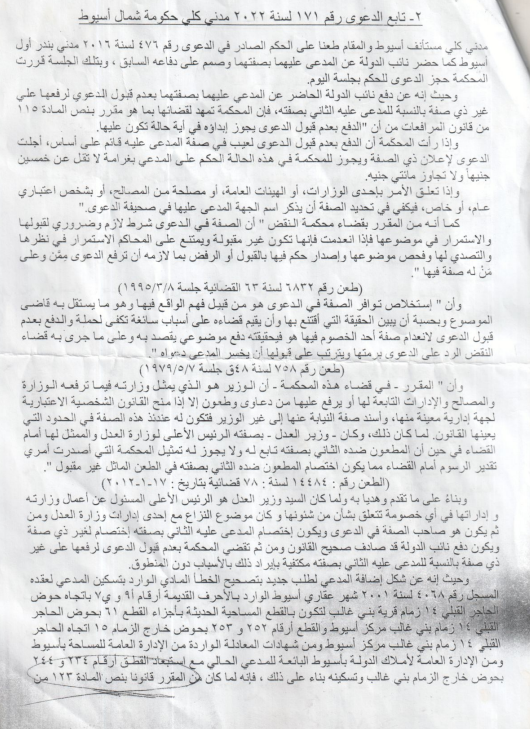 ٢- تابع الدعوى رقم ١٧١ لسنة ٢٠٢٢ مدني كلي حكومة شمال أسيوط
مدني كلي مستأنف أسيوط والمقام طعنا على الحكم الصادر في الدعوى رقم ٤٧٦ لسنة ٢٠١٦ مدني بندر أول
أسيوط كما حضر نائب الدولة عن المدعى عليهما بصفتهما وصمم على دفاعه السابق ، وبتلك الجلسة قررت
المحكمة حجز الدعوى للحكم بجلسة اليوم.
وحيث إنه عن دفع نائب الدولة الحاضر عن المدعي عليهما بصفتهما بعدم قبول الدعوي لرفعها علي
غير ذي صفة بالنسبة للمدعى عليه الثاني بصفته، فإن المحكمة تمهد لقضائها بما هو مقرر بنص المادة ١١٥
من قانون المرافعات من أن "الدفع بعدم قبول الدعوى يجوز إبداؤه في أية حالة تكون عليها.
وإذا رأت المحكمة أن الدفع بعدم قبول الدعوى لعيب في صفة المدعى عليه قائم على أساس، أجلت
الدعوى لإعلان ذي الصفة ويجوز للمحكمة في هذه الحالة الحكم على المدعي بغرامة لا تقل عن خمسين
جنيهاً ولا تجاوز مائتي جنيه.
وإذا تعلق الأمر بإحدى الوزارات، أو الهيئات العامة، أو مصلحة من المصالح، أو بشخص اعتباري
عام، أو خاص، فيكفي في تحديد الصفة أن يذكر اسم الجهة المدعى عليها في صحيفة الدعوى."
كما أنه من المقرر بقضاء محكمة النقض " أن الصفة في الدعوى شرط لازم وضروري لقبولها
والاستمرار في موضوعها فإذا انعدمت فإنها تكون غير مقبولة ويمتنع على المحاكم الاستمرار في نظرها
والتصدي لها وفحص موضوعها وإصدار حكم فيها بالقبول أو الرفض بما لازمه أن ترفع الدعوى ممَّن وعلى
مَنْ له صفة فيها ".
(طعن رقم ٦٨٣٢ لسنة ٦٣ القضائية جلسة ١٩٩٥/٣/٨)
وأن " إستخلاص توافر الصفة في الدعوى هو من قبيل فهم الواقع فيها وهو ما يستقل به قاضى
الموضوع وبحسبة أن يبين الحقيقة التي أقتنع بها وأن يقيم قضاءه على أسباب سائغة تكفى لحملة والدفع بعدم
قبول الدعوى لانعدام صفة أحد الخصوم فيها هو فيحقيقته دفع موضوعي يقصد به وعلى ما جرى به قضاء
النقض الرد على الدعوى برمتها ويترتب على قبولها أن يخسر المدعى دعواه "
(طعن رقم ٧٥٨ لسنة ٤٨ق جلسة ١٩٧٩/٥/٧)
وأن " المقرر - في قضاء هذه المحكمة - أن الوزير هو الذي يمثل وزارته فيما ترفعه الوزارة
والمصالح والإدارات التابعة لها أو يرفع عليها من دعاوى وطعون إلا إذا منح القانون الشخصية الاعتبارية
لجهة إدارية معينة منها، وأسند صفة النيابة عنها إلى غير الوزير فتكون له عندئذ هذه الصفة في الحدود التي
يعينها القانون. لما كان ذلك، وكان - وزير العدل - بصفته الرئيس الأعلى لوزارة العدل والممثل لها أمام
القضاء في حين أن المطعون ضده الثاني بصفته تابع له ولا يجوز له تمثيل المحكمة التي أصدرت أمري
تقدير الرسوم أمام القضاء مما يكون اختصام المطعون ضده الثاني بصفته في الطعن الماثل غير مقبول ".
(الطعن رقم : ١٤٤٨٤ لسنة : ٧٨ قضائية بتاريخ : ١٧-١-٢٠١٢)
وبناءً على ما تقدم وهدياً به ولما كان السيد وزير العدل هو الرئيس الأعلى المسئول عن أعمال وزارته
و إداراتها في أي خصومة تتعلق بشأن من شئونها و كان موضوع النزاع مع إحدى إدارات وزارة العدل ومن
ثم يكون هو صاحب الصفة في الدعوى ويكون إختصام المدعى عليه الثاني بصفته إختصام لغير ذي صفة
ويكون دفع نائب الدولة قد صادف صحيح القانون ومن ثم تقضي المحكمة بعدم قبول الدعوى لرفعها على غير
ذي صفة بالنسبة للمدعى عليه الثاني بصفته مكتفية بإيراد ذلك بالأسباب دون المنطوق.
وحيث إنه عن شكل إضافة المدعي لطلب جديد بتصحيح الخطأ المادي الوارد بتسكين المدعي لعقده
المسجل رقم ٤٠٦٨ لسنة ٢٠٠١ شهر عقاري أسيوط الوارد بالأحرف القديمة أرقام ٩أ و ٧ي باتجاه حوض
الحاجر القبلي ١٤ زمام قرية بني غالب لتكون بالقطع المساحية الحديثة بأجزاء القطع ٦١ بحوض الحاجر
القبلي ١٤ زمام بني غالب مركز أسيوط والقطع أرقام ٢٥٢ و ٢٥٣ بحوض خارج الزمام ١٥ اتجاه الحاجر
القبلي ١٤ زمام بني غالب مركز أسيوط ومن شهادات المعادلة الواردة من الإدارة العامة للمساحة بأسيوط
ومن الإدارة العامة لأملاك الدولة بأسيوط البائعة للمدعي الحالي مع إستبعاد القطع أرقام ٢٣٤ و ٢٤٤
بحوض خارج الزمام بني غالب وتسكينه بناء على ذلك ، فإنه لما كان من المقرر قانونا بنص المادة ١٢٣ من